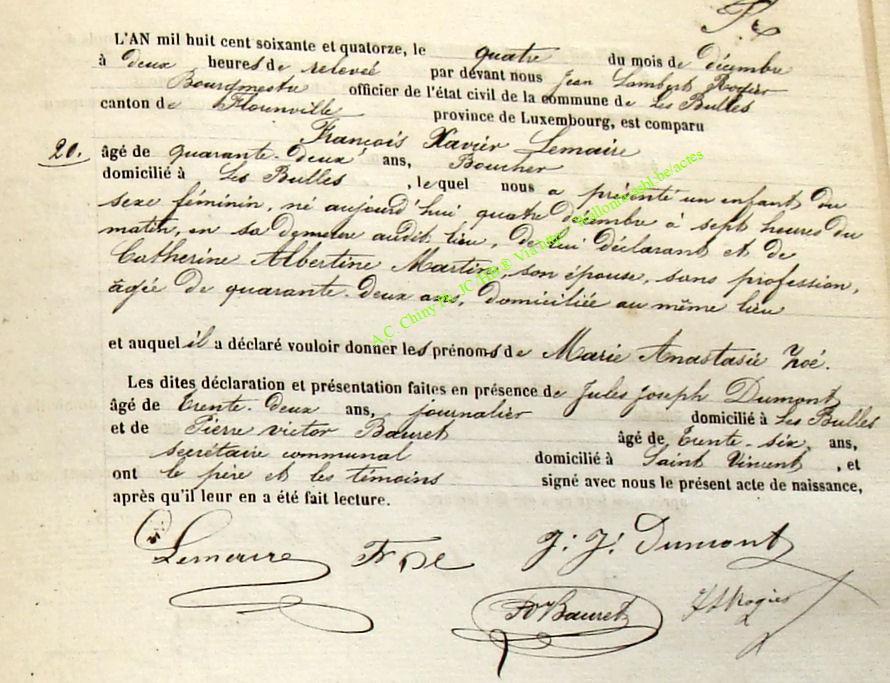 L'AN mil huit cent soixante et quatorze, le quatre du mois de décembre
à deux heures de relevée par devant nous Jean Lambert Rogier
Bourgmestre officier de l'état civil de la commune de Les Bulles
canton de Florenville province de Luxembourg, est comparu
François Xavier Lemaire
20. âgé de quarante-deux ans, Boucher
domicilié à Les Bulles , lequel nous a présenté un enfant du
sexe féminin, né aujourd'hui quatre décembre à sept heures du
matin, en sa demeure audit lieu, de lui déclarant et de
Catherine Albertine Martin, son épouse, sans profession,
âgée de quarante-deux ans, domiciliée au même lieu
A.C. Chiny
et auquel il a déclaré vouloir donner les prénoms de Marie Anastasie Zoé.
Les dites déclaration et présentation faites en présence de Jules Joseph Dumont
âgé de trente-deux ans, journalier domicilié à Les Bulles
et de Pierre victor Bauret âgé de trente-six ans,
secrétaire communal domicilié à Saint Vincent , et
ont le père et les témoins signé avec nous le présent acte de naissance,
après qu'il leur en a été fait lecture.
Lemaire J. J. Dumont
PVBauret JLRogier